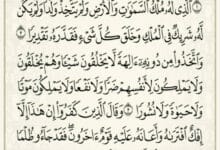 ٱلَّذِى لَهُۥ مُلْكُ ٱلسَّمَٰوَٰتِ وَٱلْأَرْضِ وَلَمْ يَتَّخِذْ وَلَدًا وَلَمْ يَكُن
لَّهُۥ شَرِيكٌ فِى ٱلْمُلْكِ وَخَلَقَ كُلَّ شَىْءٍ فَقَدَّرَهُۥ تَقْدِيرًا ٢
وَٱتَّخَذُوا۟ مِن دُونِهِۦٓ ءَالِهَةً لَّا يَخْلُقُونَ شَيْـًٔا وَهُمْ يُخْلَقُونَ
وَلَا يَمْلِكُونَ لِأَنفُسِهِمْ ضَرًّا وَلَا نَفْعًا وَلَا يَمْلِكُونَ مَوْتًا
وَلَا حَيَوٰةً وَلَا نُشُورًا ٣ وَقَالَ ٱلَّذِينَ كَفَرُوٓا۟ إِنْ هَٰذَآ إِلَّآ
إِفْكٌ ٱفْتَرَىٰهُ وَأَعَانَهُۥ عَلَيْهِ قَوْمٌ ءَاخَرُونَ ۖ فَقَدْ جَآءُو ظُلْمًا